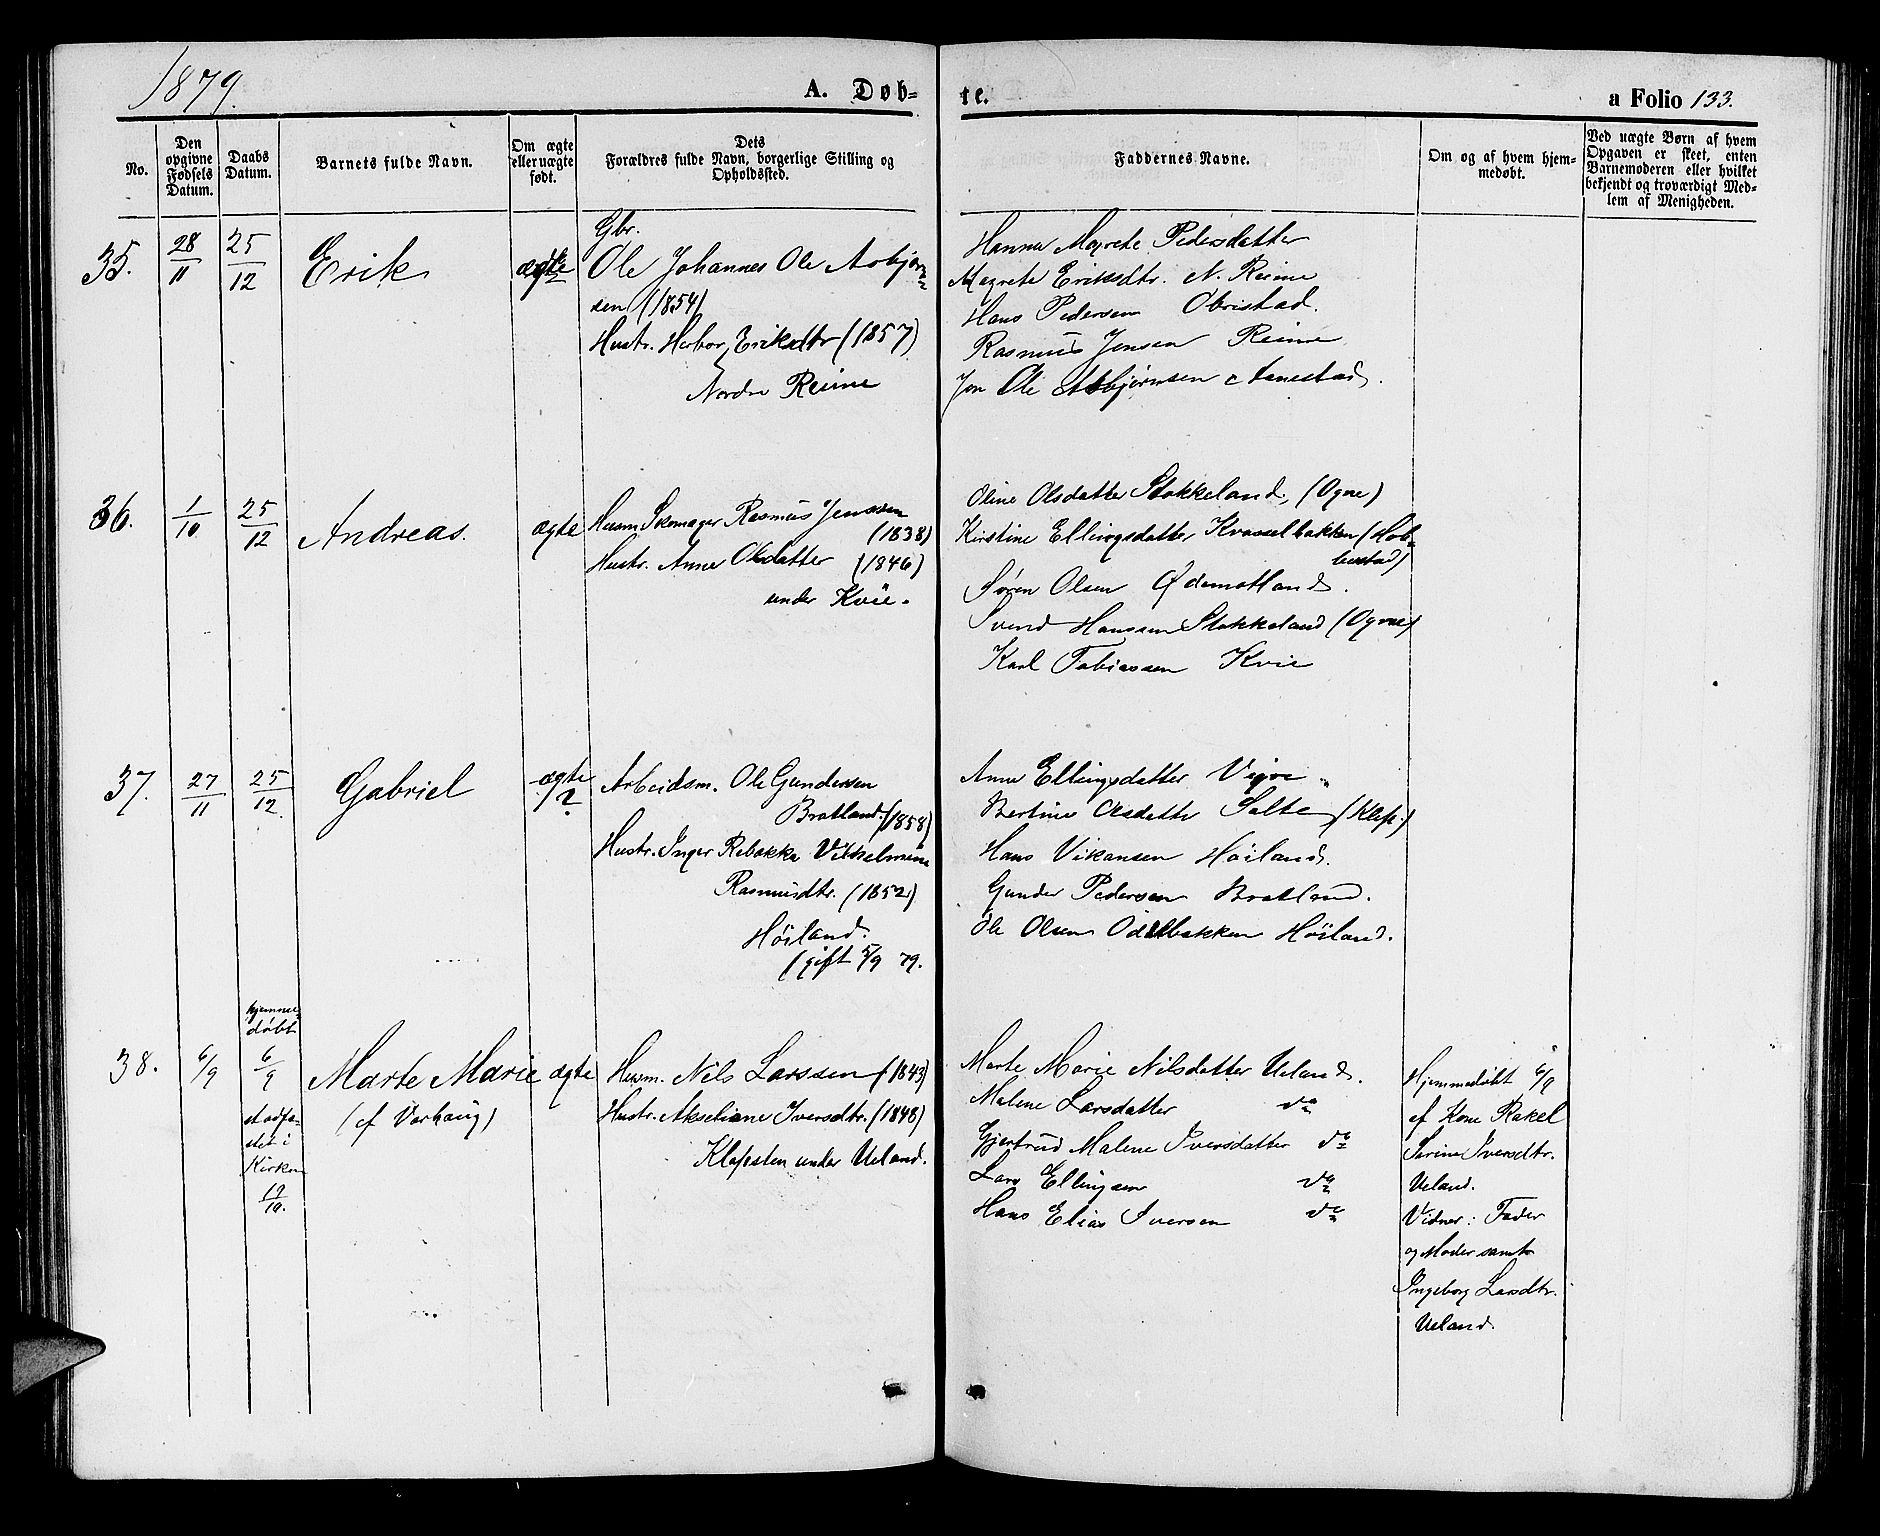 1879.
A. Døb-
te.
a Folio 133.
No.
Den
opgivne
Fødsels
Datum.
Daabs
Datum.
Barnets fulde Navn.
Om ægte
eller uægte
født.
Dets
Forældres fulde Navn, borgerlige Stilling og
Opholdssted.
Faddernes Navne.
Om og af hvem hjem-
medøbt.
Ved uægte Børn af hvem
Opgaven er skeet, enten
Barnemoderen eller hvilket
bekjendt og troværdigt Med-
lem af Menigheden.
35.
28/11
25/12
Erik
ægte
Gbr.
Ole Johannes Ole Asbjørn=
sen (1854)
Hustr. Herbor Eriksdtr (1857)
Nordre Reime
Hanna Magrete Pedersdatter
Magrete Eriksdtr. N. Reime
Hans Pedersen Obristad.
Rasmus Jensen Reime
Jon Ole Asbjørnsen Aanestad.
36.
1/10
25/12
Andreas.
ægte
Husm. Skomager Rasmus Jenssen
(1838)
Hustr. Anne Olsdatter (1846)
under Kvie.
Oline Olsdatter Stokkeland, (Ogne)
Kirstine Ellingsdatter Kvasselbakken (Hob=
berstad)
Søren Olsen Ødemotland.
Svend Hanssen Stokkeland (Ogne)
Karl Tobiassen Kvie
37.
27/11
25/12
Gabriel
ægte
?
Arbeidsm. Ole Gundersen
Bratland. (1858)
Hustr. Inger Rebekka Vilhelmine
Rasmusdtr. (1852)
Høiland.
(gift 5/9 79.
Anne Ellingsdatter Vigre
Bertine Olsdatter Salte (Klep.)
Hans Vikansen Høiland.
Gunder Pedersen Bratland.
Ole Olsen Odelbakken Høiland.
38.
6/9
hjemme=
døbt
6/9
stadfæ-
stet i
Kirken
19/10.
Marte Marie
(cf Varhaug)
ægte
Husm. Nils Larssen (1843)
Hustr. Akseliane Iversdtr. (1848)
Klapsten under Ueland.
Marte Marie Nilsdatter Ueland.
Malene Larsdatter do
Gjertrud Malene Iversdatter do
Lars Ellingsen do
Hans Elias Iversen do
Hjemmedøbt 6/9
af Kone Rakel
Serine Iversdtr.
Ueland.
Vidner: Fader
og Moder samt
Ingeborg Larsdtr.
Ueland.